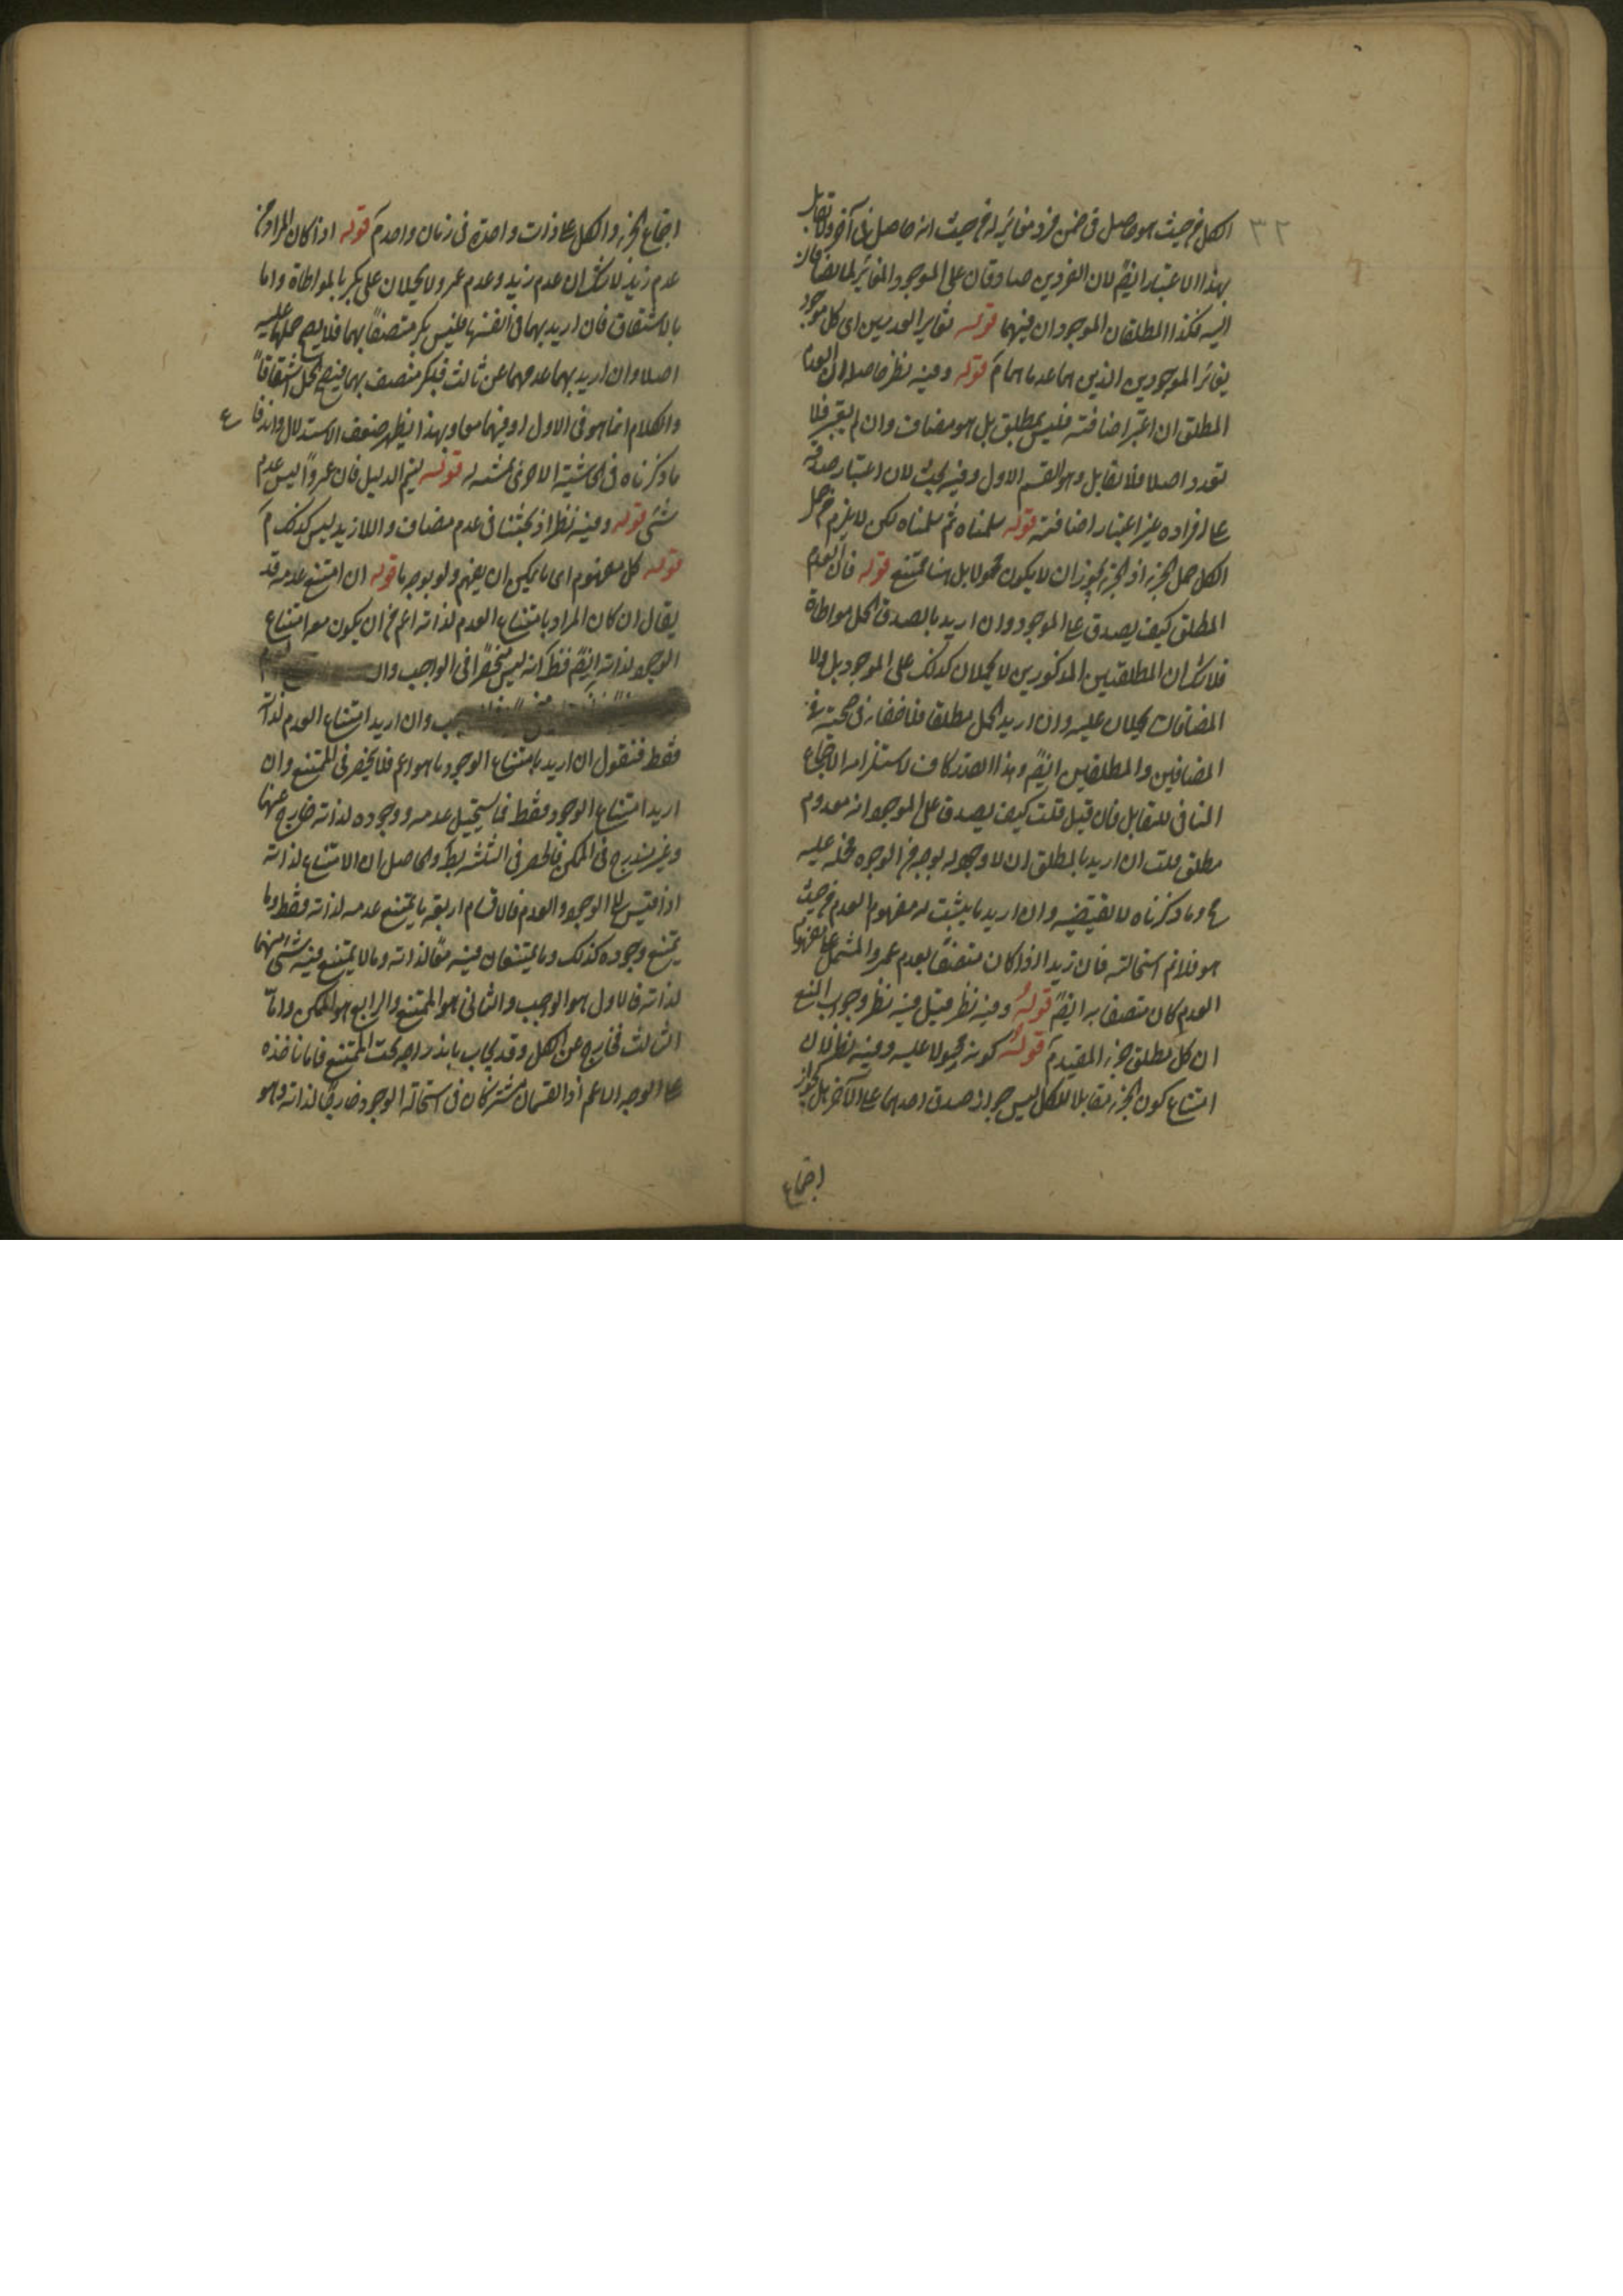 ٣٢
الكل من حيث هو حاصل في ضمن فرد مغاير له من حيث انه حاصل في آخر ولا تقابل
بهذا الاعتبار ايضً لان الفردين صادقان على الموجود المغاير لما يضافان
اليه فكذا المطلقان الموجودان فيهما قوله تغاير العدمين اى كل موجود
يغاير الموجودين الذين هما عدماهما مَ قوله وفيه نظر حاصله ان العدم
المطلق ان اعتبر اضافته فليس بمطلق بل هو مضاف وان لم يعتبر فلا
تعدد اصلا فلا تقابل وهو القسم الاول وفيه بحث لان اعتبار صدقه
على افراده غير اعتبار اضافته قوله سلمناه ثم سلمناه لكن لا يلزم من حمل
الكل حمل الجزء اذ الجزء يجوز ان لا يكون محمولا بل هنا ممتنع قوله فان العدم
المطلق كيف يصدق على الموجود وان اريد بالصدق الحمل مواطاة
فلا شك ان المطلقين المذكورين لا يحملان كذلك على الموجود بل ولا
المضافان يحملان عليه وان اريد الحمل مطلقا فلا خفاء في صحته في
المضافين والمطلقين ايضً وهذا القدر كاف لاستلزامه الاجتماع
المنافي للتقابل فان قيل قلت كيف يصدق على الموجود انه معدوم
مطلق قلت ان اريد بالمطلق ان لا وجود له بوجه من الوجوه فحمله عليه
مح وما ذكرناه لا يقتضيه وان اريد ما يثبت له مفهوم العدم من حيث
هو فلا نم استحالته فان زيدا اذا كان متصفً بعدم عمرو المشتمل على مفهوم
العدم كان متصفا به ايضً قولهُ وفيه نظر قيل فيه نظر وجوب المنع
ان كل مطلق جزء المقيد مَ قولهُ كونه محمولا عليه وفيه نظر لان
امتناع كون الجزء مقابلا للكل ليس جواز صدق احدهما على الآخر بل لجواز
اجتماع
اجتماع الجزء والكل على ذات واحدة في زمان واحد مَ قوله اذا كان المراد من
عدم زيد لا شك ان عدم زيد وعدم عمرو لا يحملان على بكر بالمواطاة واما
بالاشتقاق فان اريد بهما في انفسهما فليس بكر متصفًا بهما فلا يصح حملهما عليه
اصلا وان اريد بهما عدمهما عن ثالث فبكر متصف بهما فيصح الحمل اشتقاقًا
والكلام انما هو في الاول او فيهما معا وبهذا يظهر ضعف الاستدلال واندفاع
ما ذكرناه في الحاشية الاخرى قوله ليتم الدليل فان عمروًا ليس عدم
شئ قوله وفيه نظر اذ بحثنا في عدم مضاف واللازيد ليس كذلك مَ
قوله كل مفهوم اى ما يمكن ان يفهم ولو بوجه ما قوله ان امتنع عدمه قد
يقال ان كان المراد بامتناع العدم لذاته اعم من ان يكون معه امتناع
الوجود لذاته ايضً فظَ انه ليس منحصرًا في الواجب
وان اريد امتناع العدم لذاته
فقط فنقول ان اريد بامتناع الوجود ما هو اعم فلا ينحصر في الممتنع وان
اريد امتناع الوجود فقط فما يستحيل عدمه ووجوده لذاته خارج عنهما
وغير مندرج في الممكن فالحصر في الثلثة بطَ والحاصل ان الامتناع لذاته
اذا قيس الى الوجود والعدم فالاقسام اربعة ما يمتنع عدمه لذاته فقط وما
يمتنع وجوده كذلك وما يمتنعان فيه معًا لذاته وما لا يمتنع فيه شئ منهما
لذاته فالاول هو الواجب والثاني هو الممتنع والرابع هو الممكن واما
الثالث فخارج عن الكل وقد يجاب باندراجه تحت الممتنع فانا ناخذه
على الوجه الاعم اذ القسمان مشتركان في استحالة الوجود خارجًا لذاته وهو